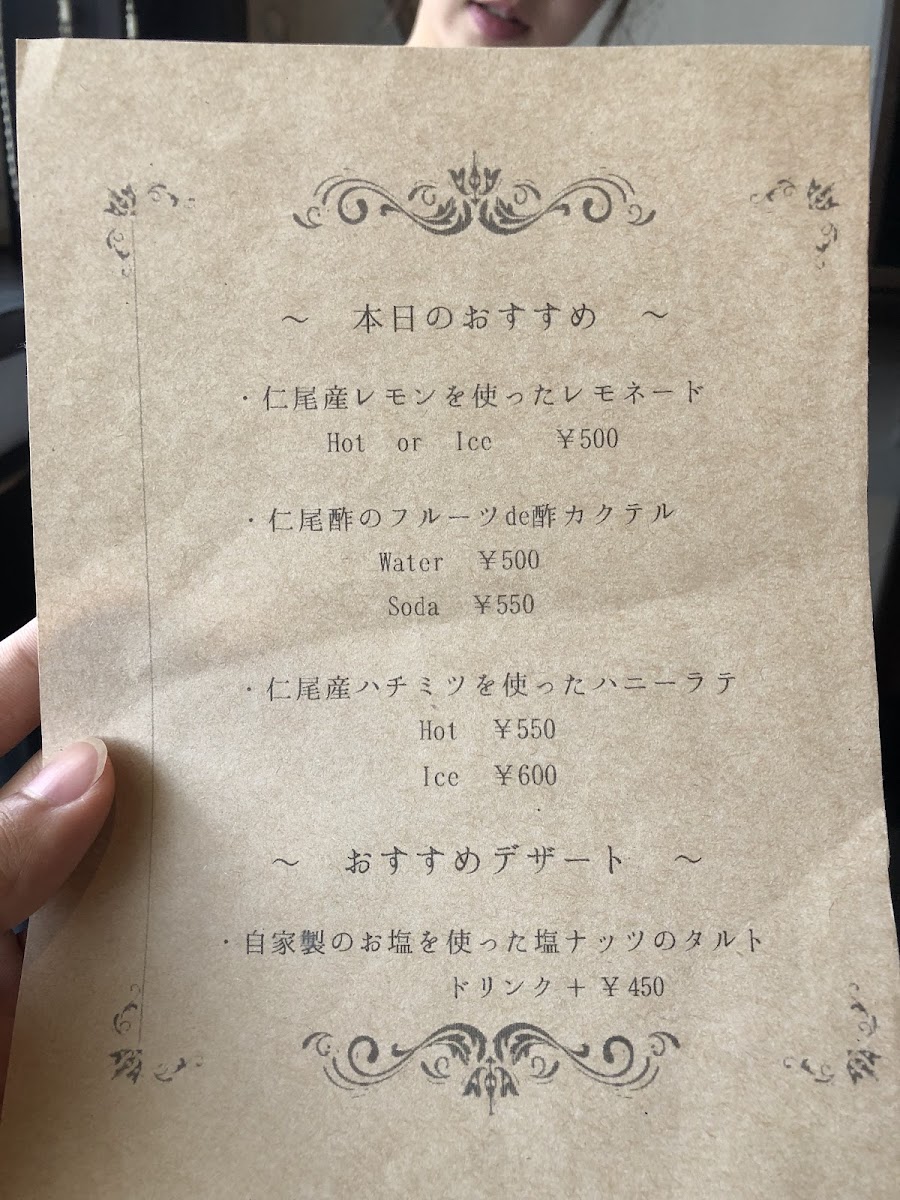 ～　本日のおすすめ　～
・仁尾産レモンを使ったレモネード
Hot or Ice ￥500
・仁尾酢のフルーツde酢カクテル
Water ￥500
Soda ￥550
・仁尾産ハチミツを使ったハニーラテ
Hot ￥550
Ice ￥600
～　おすすめデザート　～
・自家製のお塩を使った塩ナッツのタルト
ドリンク＋￥450